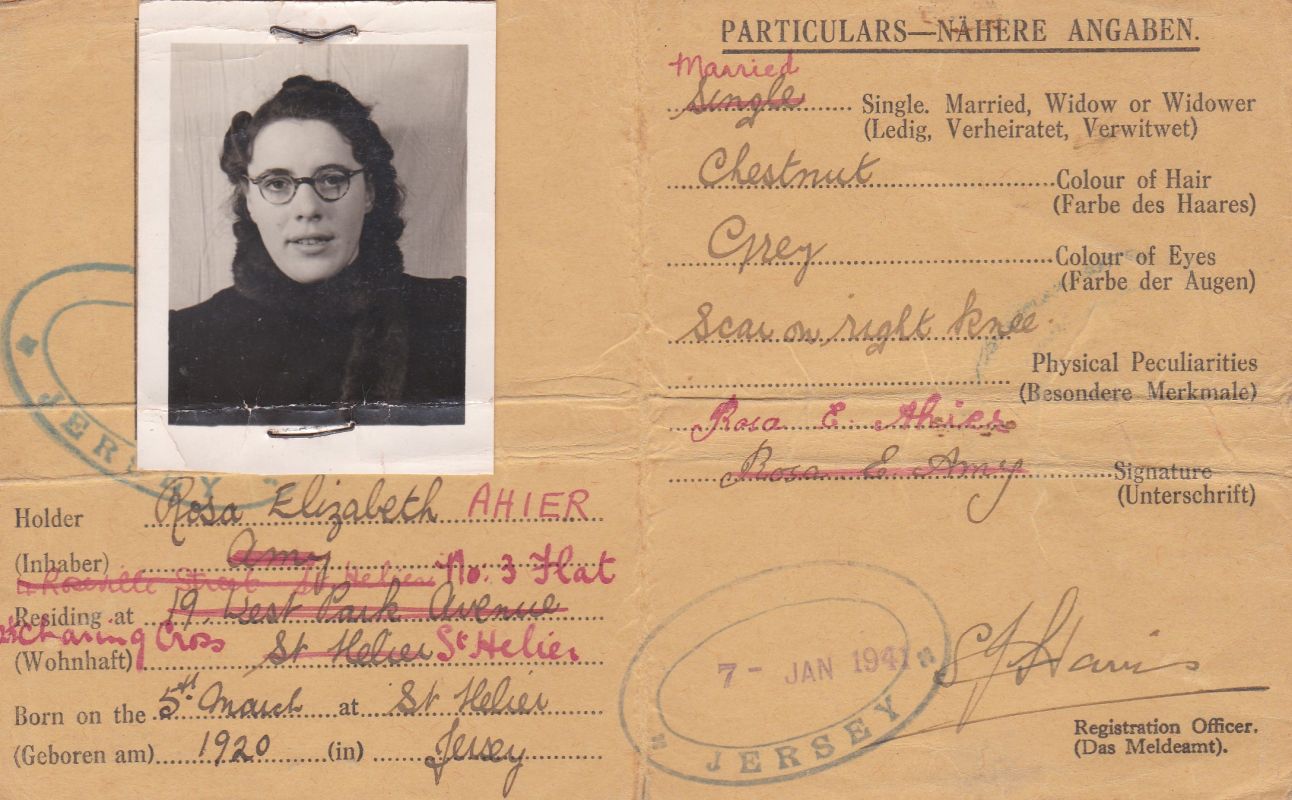 JERSEY
Holder Rosa Elizabeth AHIER
(Inhaber) Amy
4 Roseville Street St Helier No. 3 Flat
Residing at 19. West Park Avenue
Charing Cross
(Wohnhaft) St Helier St Helier
Born on the 5th March at St Helier
(Geboren am) 1920 (in) Jersey
PARTICULARS—NÄHERE ANGABEN.
Married
Single Single. Married, Widow or Widower
(Ledig, Verheiratet, Verwitwet)
Chestnut Colour of Hair
(Farbe des Haares)
Grey Colour of Eyes
(Farbe der Augen)
Scar on right knee.
Physical Peculiarities
(Besondere Merkmale)
Rosa E. Ahier
Rosa E Amy Signature
(Unterschrift)
7 - JAN 1941
JERSEY
Registration Officer.
(Das Meldeamt).